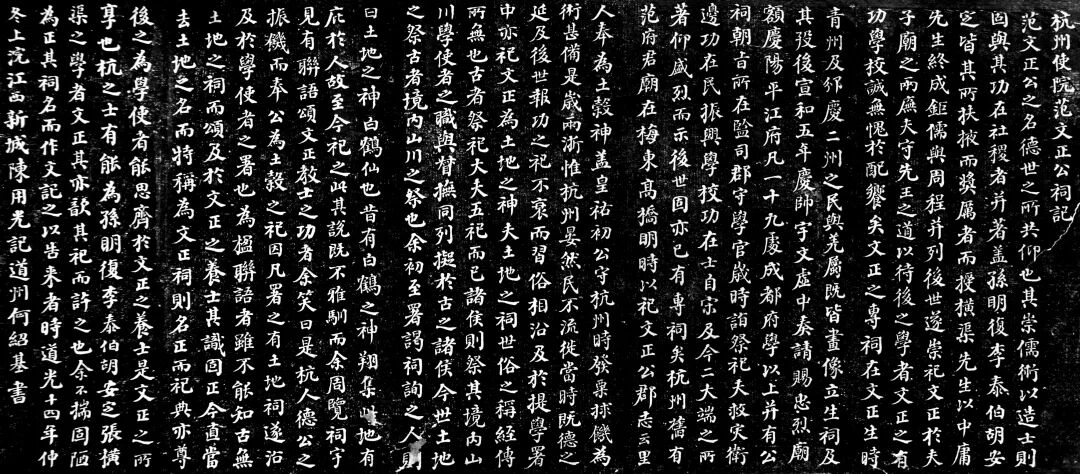 杭州使院范文正公祠記
范文正公之名德世之所共仰也其崇儒術以造士則
固與其功在社稷者並著蓋孫明復李泰伯胡安
定皆其所扶掖而獎厲者而授橫渠先生以中庸
先生終成鉅儒與周程並列後世遂崇祀文正於夫
子廟之兩廡夫守先王之道以待後之學者文正之有
功學校誠無愧於配饗矣文正之專祠在文正生時
青州及邠慶二州之民與羌屬既皆畫像立生祠及
其歿後宣和五年慶帥宇文虛中奏請賜忠烈廟
額慶陽平江府凡一十九處成都府學以上並有公
祠朝旨所在監司郡守學官歲時詣祭祀夫救灾衛
邊功在民振興學校功在士自宋及今二大端之所
著仰盛烈而示後世固亦已有專祠矣杭州舊有
范府君廟在梅東高橋明時以祀文正公郡志云里
人奉為土穀神蓋皇祐初公守杭州時發粟捄饑為
術甚備是歲兩浙惟杭州晏然民不流徙當時既德之
延及後世報功之祀不衰而習俗相沿及於提學署
中亦祀文正為土地之神夫土地之祠世俗之稱經傳
所無也古者祭祀大夫五祀而已諸侯則祭其境内山
川學使者之職與督撫同列擬於古之諸侯今世土地
之祭古者境内山川之祭也余初至署謁祠詢之人則
曰土地之神白鶴仙也昔有白鶴之神翔集此地有
庇於人故至今祀之此其說既不雅馴而余周覽祠宇
見有聯語頌文正教士之功者余笑曰是杭人德公之
振饑而奉公為土穀之祀因凡署之有土地祠遂沿
及於學使者之署也為楹聯語者雖不能知古無
土地之祠而頌及於文正之養士其識固正今直當
去土地之名而特稱為文正祠則名正而祀典亦尊
後之為學使者能思齊於文正之養士是文正之所
享也杭之士有能為孫明復李泰伯胡安定張橫
渠之學者文正其亦歆其祀而許之也余不揣固陋
為正其祠名而作文記之以告來者時道光十四年仲
冬上浣江西新城陳用光記道州何紹基書